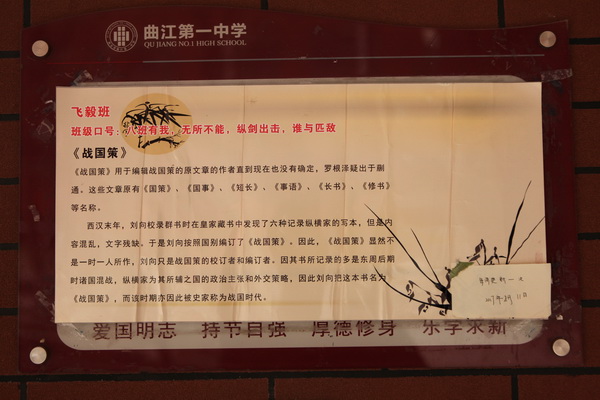 曲江第一中学
QU JIANG NO.1 HIGH SCHOOL
飞毅班
班级口号：八班有我，无所不能，纵剑出击，谁与匹敌
《战国策》
《战国策》用于编辑战国策的原文章的作者直到现在也没有确定，罗根泽疑出于蒯
通。这些文章原有《国策》、《国事》、《短长》、《事语》、《长书》、《修书》
等名称。
西汉末年，刘向校录群书时在皇家藏书中发现了六种记录纵横家的写本，但是内
容混乱，文字残缺。于是刘向按照国别编订了《战国策》。因此，《战国策》显然不
是一时一人所作，刘向只是战国策的校订者和编订者。因其书所记录的多是东周后期
时诸国混战，纵横家为其所辅之国的政治主张和外交策略，因此刘向把这本书名为
《战国策》，而该时期亦因此被史家称为战国时代。
爱国明志 持节自强 厚德修身 乐学求新